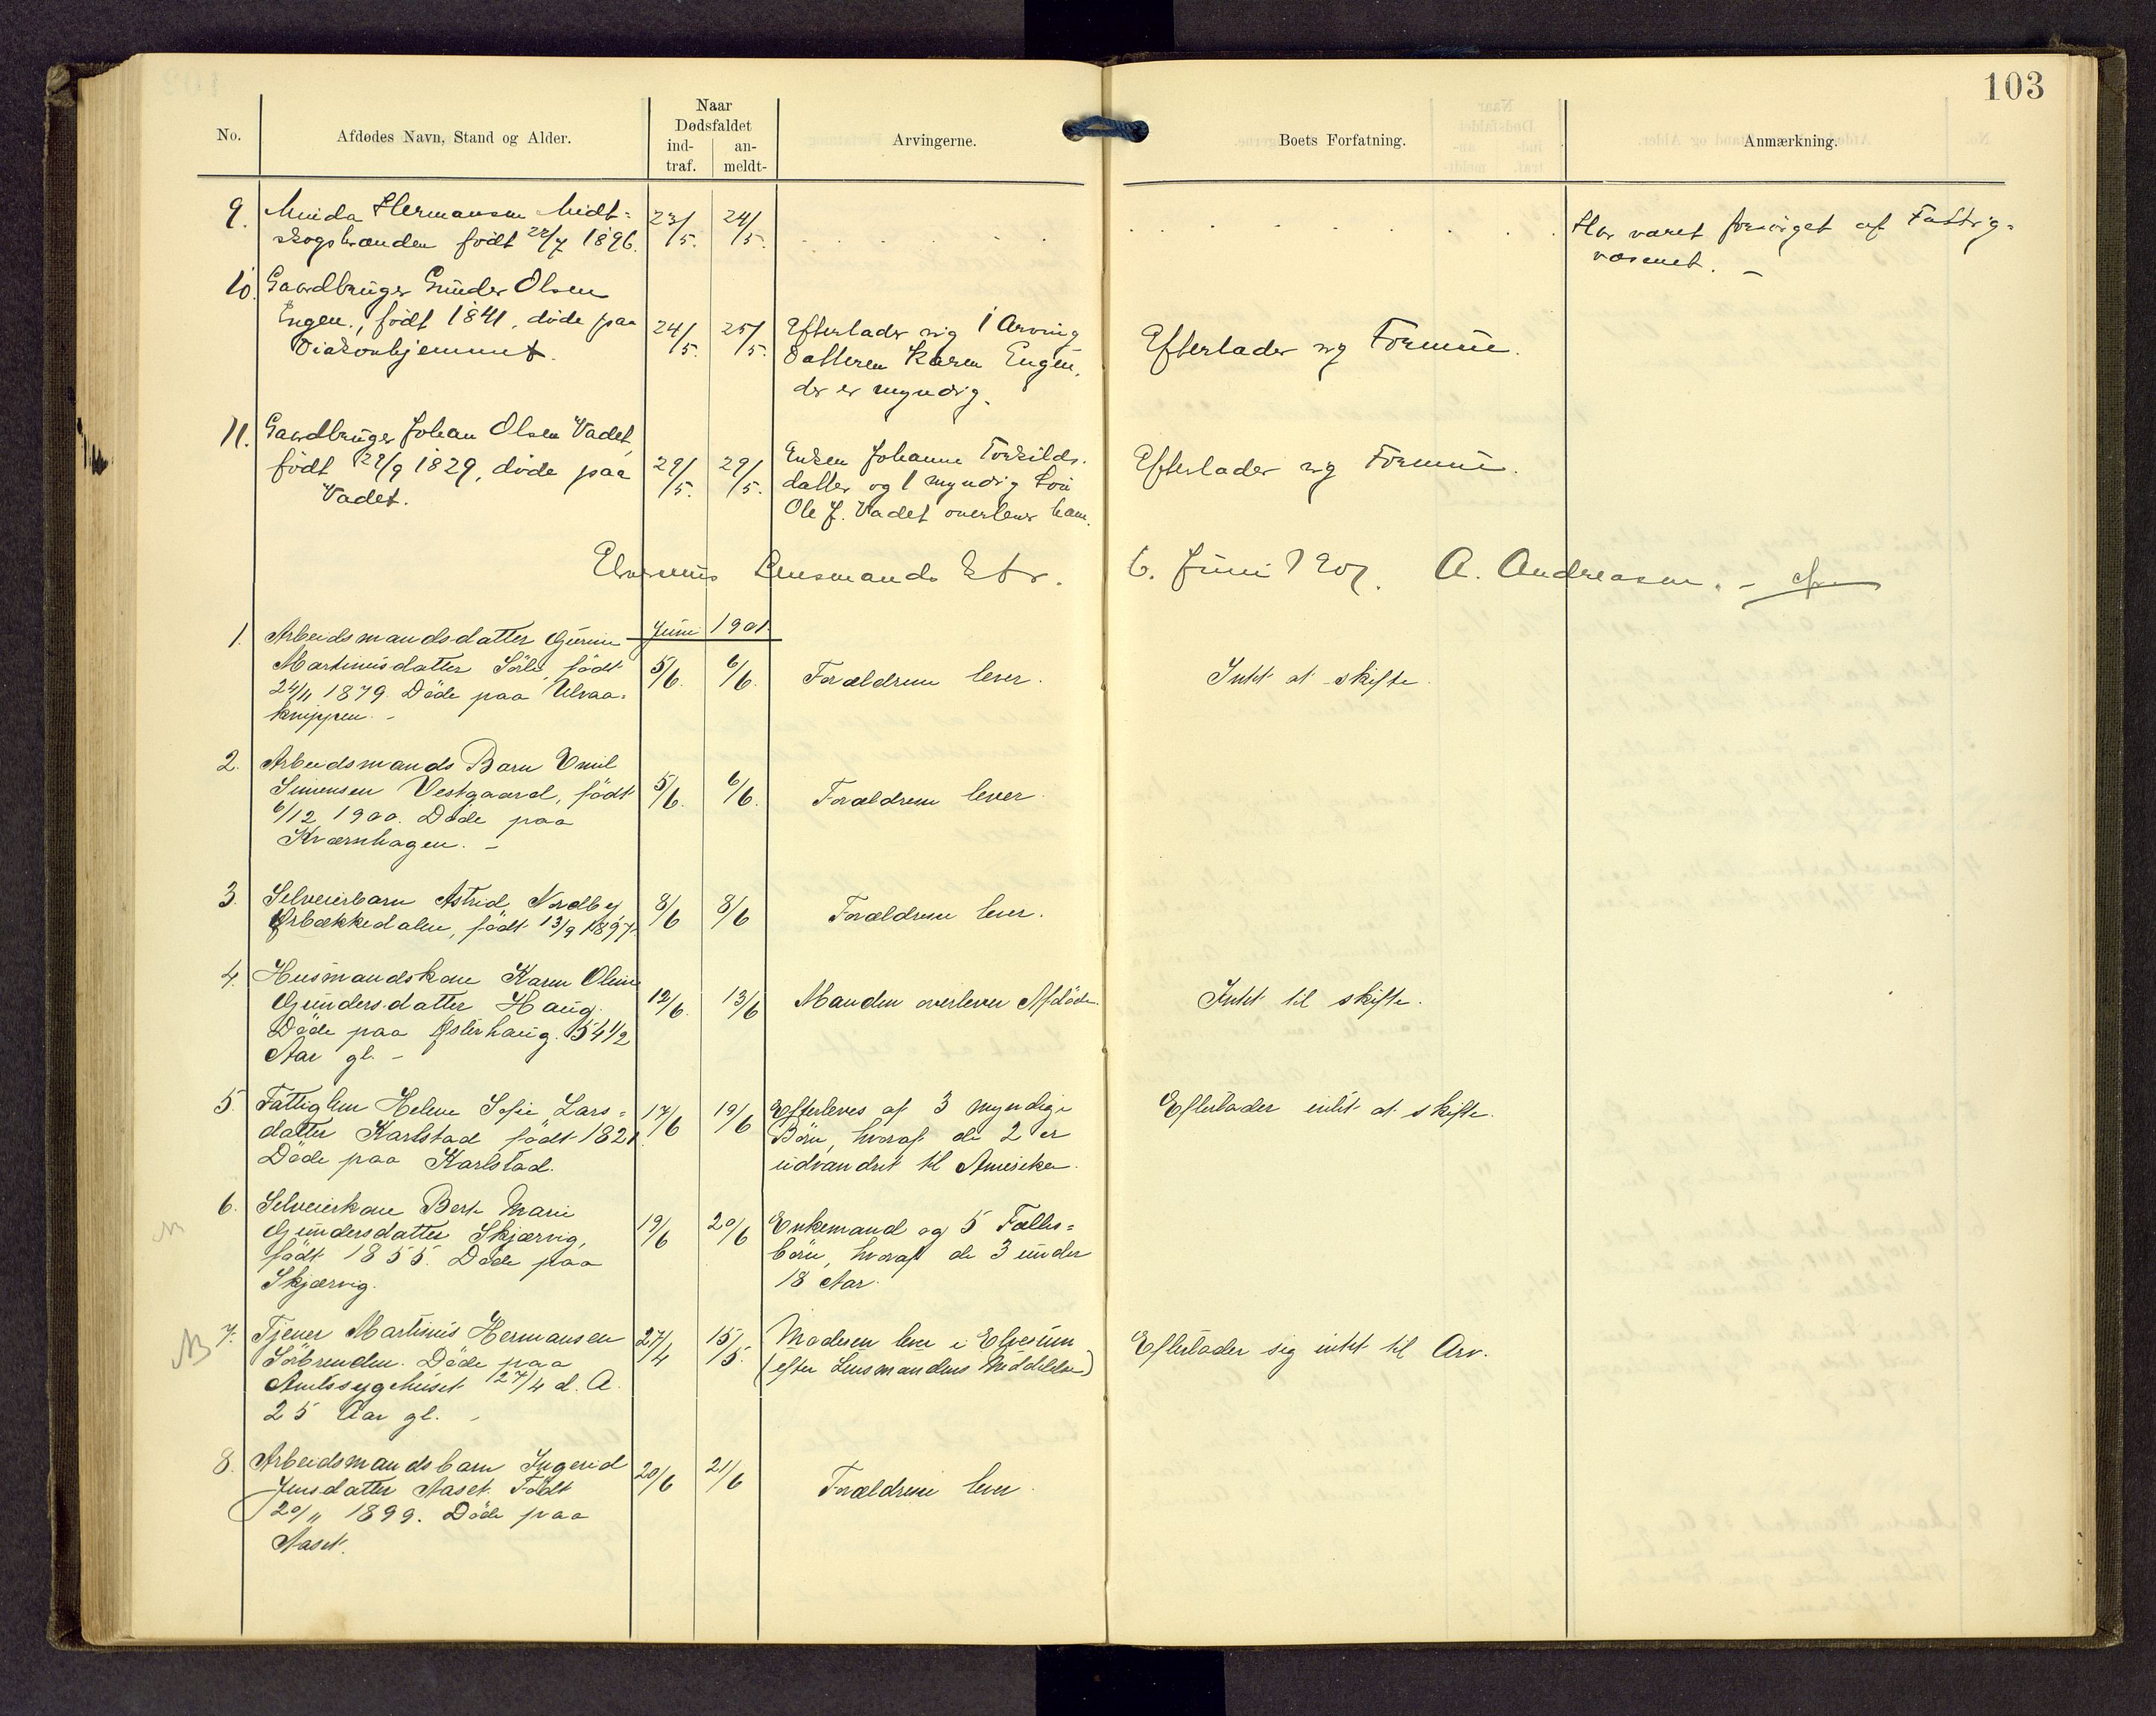 103
No.
Afdødes Navn, Stand og Alder.
Naar
Dødsfaldet
ind-
traf.
an-
meldt-
Arvingerne.
Boets Forfatning.
Anmærkning.
9. Hermansen Midt-
skogsbranden født 28/7 1896.
23/5. 24/5.
Har været forsørget af Fattig-
væsenet. -
10. Gaardbruger Gunder Olsen
Engen., født 1841, døde paa
Diakonhjemmet.
24/5. 25/5.
Efterlader sig 1 Arving
Datteren Karen Engen,
der er myndig.
Efterlader sig Formue.
11. Gaardbruger Johan Olsen Vadet,
født 28/9 1829, døde paa
Vadet.
29/5. 29/5.
Enken Johanne Torkilds-
datter og 1 myndig Søn
Ole J. Vadet overlever ham.
Efterlader sig Formue.
Elverums Lensmands Ktr. 6. Juni 1901. A. Andreasen. -
Juni 1901
1. Arbeidsmandsdatter Gurine
Martinusdatter Sörli, födt
24/11 1879. Döde paa Ulvaa-
knippen. -
5/6. 6/6.
Forældrene lever.
Intet at skifte.
2. Arbeidsmands Barn Emil
Simensen Vestgaard, födt
6/12 1900. Döde paa
Kværnhagen. -
5/6. 6/6.
Forældrene lever.
3. Selveierbarn Astrid Nordby
Ørbækkedalen, födt 13/9 1897.
8/6 8/6
Forældrene lever.
4. Husmandskone Karen Oline
Gundersdatter Haug.
Döde paa Østerhaug. 54 1/2
Aar gl. -
12/6. 13/6
Manden overlever Afdöde.
Intet til skifte.
5. Fattiglem Helene Sofie Lars-
datter Karlstad födt 1821.
Döde paa Karlstad.
17/6 19/6
Efterleves af 3 myndige
Börn, hvoraf de 2 er
udvandret til Amerika.
Efterlader intet at skifte.
6. Selveierkone Berte Marie
Gundersdatter Skjærvig,
födt 1855. Döde paa
Skjærvig.
19/6 20/6
Enkemand og 5 Fælles-
börn, hvoraf de 3 under
18 Aar.
7. Tjener Martinus Hermansen
Sörbrenden. Döde paa
Amtssygehuset 27/4 d. A.
25 Aar gl. -
27/4 15/5.
Moderen lever i Elverum
(efter Lensmandens Meddelelse)
Efterlader sig intet til Arv.
8. Arbeidsmandsbarn Ingerid
Jensdatter Aaset. Födt
20/11 1899. Döde paa
Aaset.
20/6 21/6
Forældrene lever.